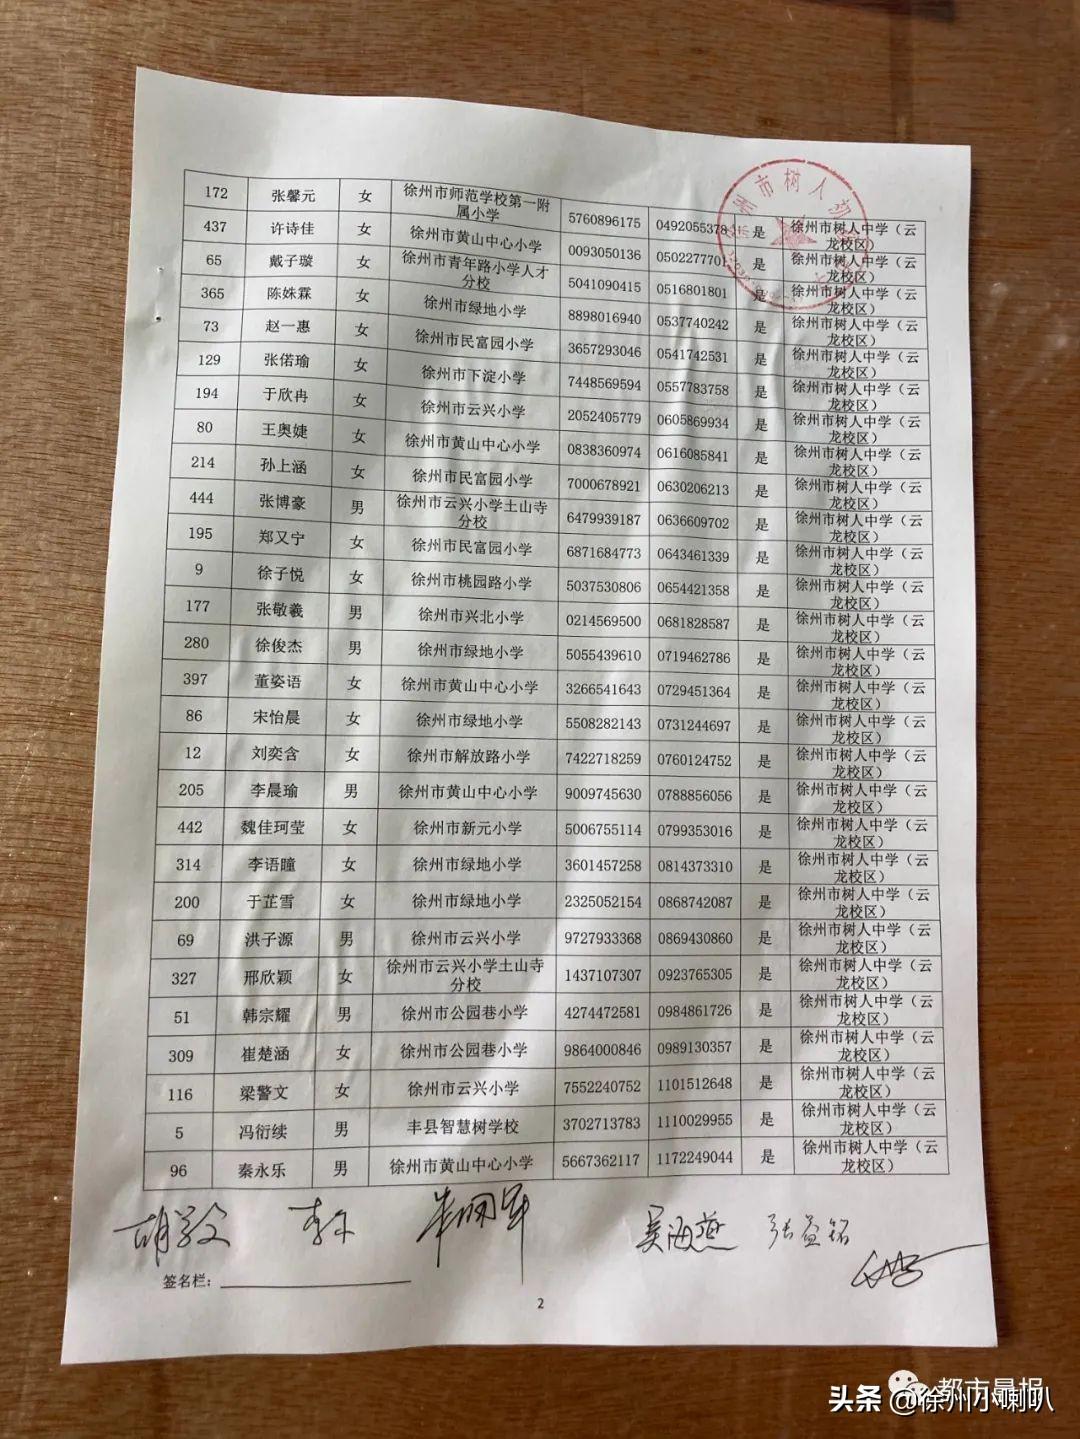 172 张馨元 女 徐州市师范学校第一附属小学 5760896175 0492055378 是 徐州市树人中学（云龙校区）
437 许诗佳 女 徐州市黄山中心小学 0093050136 0502277701 是 徐州市树人中学（云龙校区）
65 戴子璇 女 徐州市青年路小学人才分校 5041090415 0516801801 是 徐州市树人中学（云龙校区）
365 陈姝霖 女 徐州市绿地小学 8898016940 0537740242 是 徐州市树人中学（云龙校区）
73 赵一惠 女 徐州市民富园小学 3657293046 0541742531 是 徐州市树人中学（云龙校区）
129 张偌瑜 女 徐州市下淀小学 7448569594 0557783758 是 徐州市树人中学（云龙校区）
194 于欣冉 女 徐州市云兴小学 2052405779 0605869934 是 徐州市树人中学（云龙校区）
80 王奥婕 女 徐州市黄山中心小学 0838360974 0616085841 是 徐州市树人中学（云龙校区）
214 孙上涵 女 徐州市民富园小学 7000678921 0630206213 是 徐州市树人中学（云龙校区）
444 张博豪 男 徐州市云兴小学土山寺分校 6479939187 0636609702 是 徐州市树人中学（云龙校区）
195 郑又宁 女 徐州市民富园小学 6871684773 0643461339 是 徐州市树人中学（云龙校区）
9 徐子悦 女 徐州市桃园路小学 5037530806 0654421358 是 徐州市树人中学（云龙校区）
177 张敬羲 男 徐州市兴北小学 0214569500 0681828587 是 徐州市树人中学（云龙校区）
280 徐俊杰 男 徐州市绿地小学 5055439610 0719462786 是 徐州市树人中学（云龙校区）
397 董姿语 女 徐州市黄山中心小学 3266541643 0729451364 是 徐州市树人中学（云龙校区）
86 宋怡晨 女 徐州市绿地小学 5508282143 0731244697 是 徐州市树人中学（云龙校区）
12 刘奕含 女 徐州市解放路小学 7422718259 0760124752 是 徐州市树人中学（云龙校区）
205 李晨瑜 男 徐州市黄山中心小学 9009745630 0788856056 是 徐州市树人中学（云龙校区）
442 魏佳珂莹 女 徐州市新元小学 5006755114 0799353016 是 徐州市树人中学（云龙校区）
314 李语瞳 女 徐州市绿地小学 3601457258 0814373310 是 徐州市树人中学（云龙校区）
200 于芷雪 女 徐州市绿地小学 2325052154 0868742087 是 徐州市树人中学（云龙校区）
69 洪子源 男 徐州市云兴小学 9727933368 0869430860 是 徐州市树人中学（云龙校区）
327 邢欣颖 女 徐州市云兴小学土山寺分校 1437107307 0923765305 是 徐州市树人中学（云龙校区）
51 韩宗耀 男 徐州市公园巷小学 4274472581 0984861726 是 徐州市树人中学（云龙校区）
309 崔楚涵 女 徐州市公园巷小学 9864000846 0989130357 是 徐州市树人中学（云龙校区）
116 梁警文 女 徐州市云兴小学 7552240752 1101512648 是 徐州市树人中学（云龙校区）
5 冯衍续 男 丰县智慧树学校 3702713783 1110029955 是 徐州市树人中学（云龙校区）
96 秦永乐 男 徐州市黄山中心小学 5667362117 1172249044 是 徐州市树人中学（云龙校区）
吴海燕 张益铭
签名栏：
2
都市晨报
头条 @徐州小喇叭